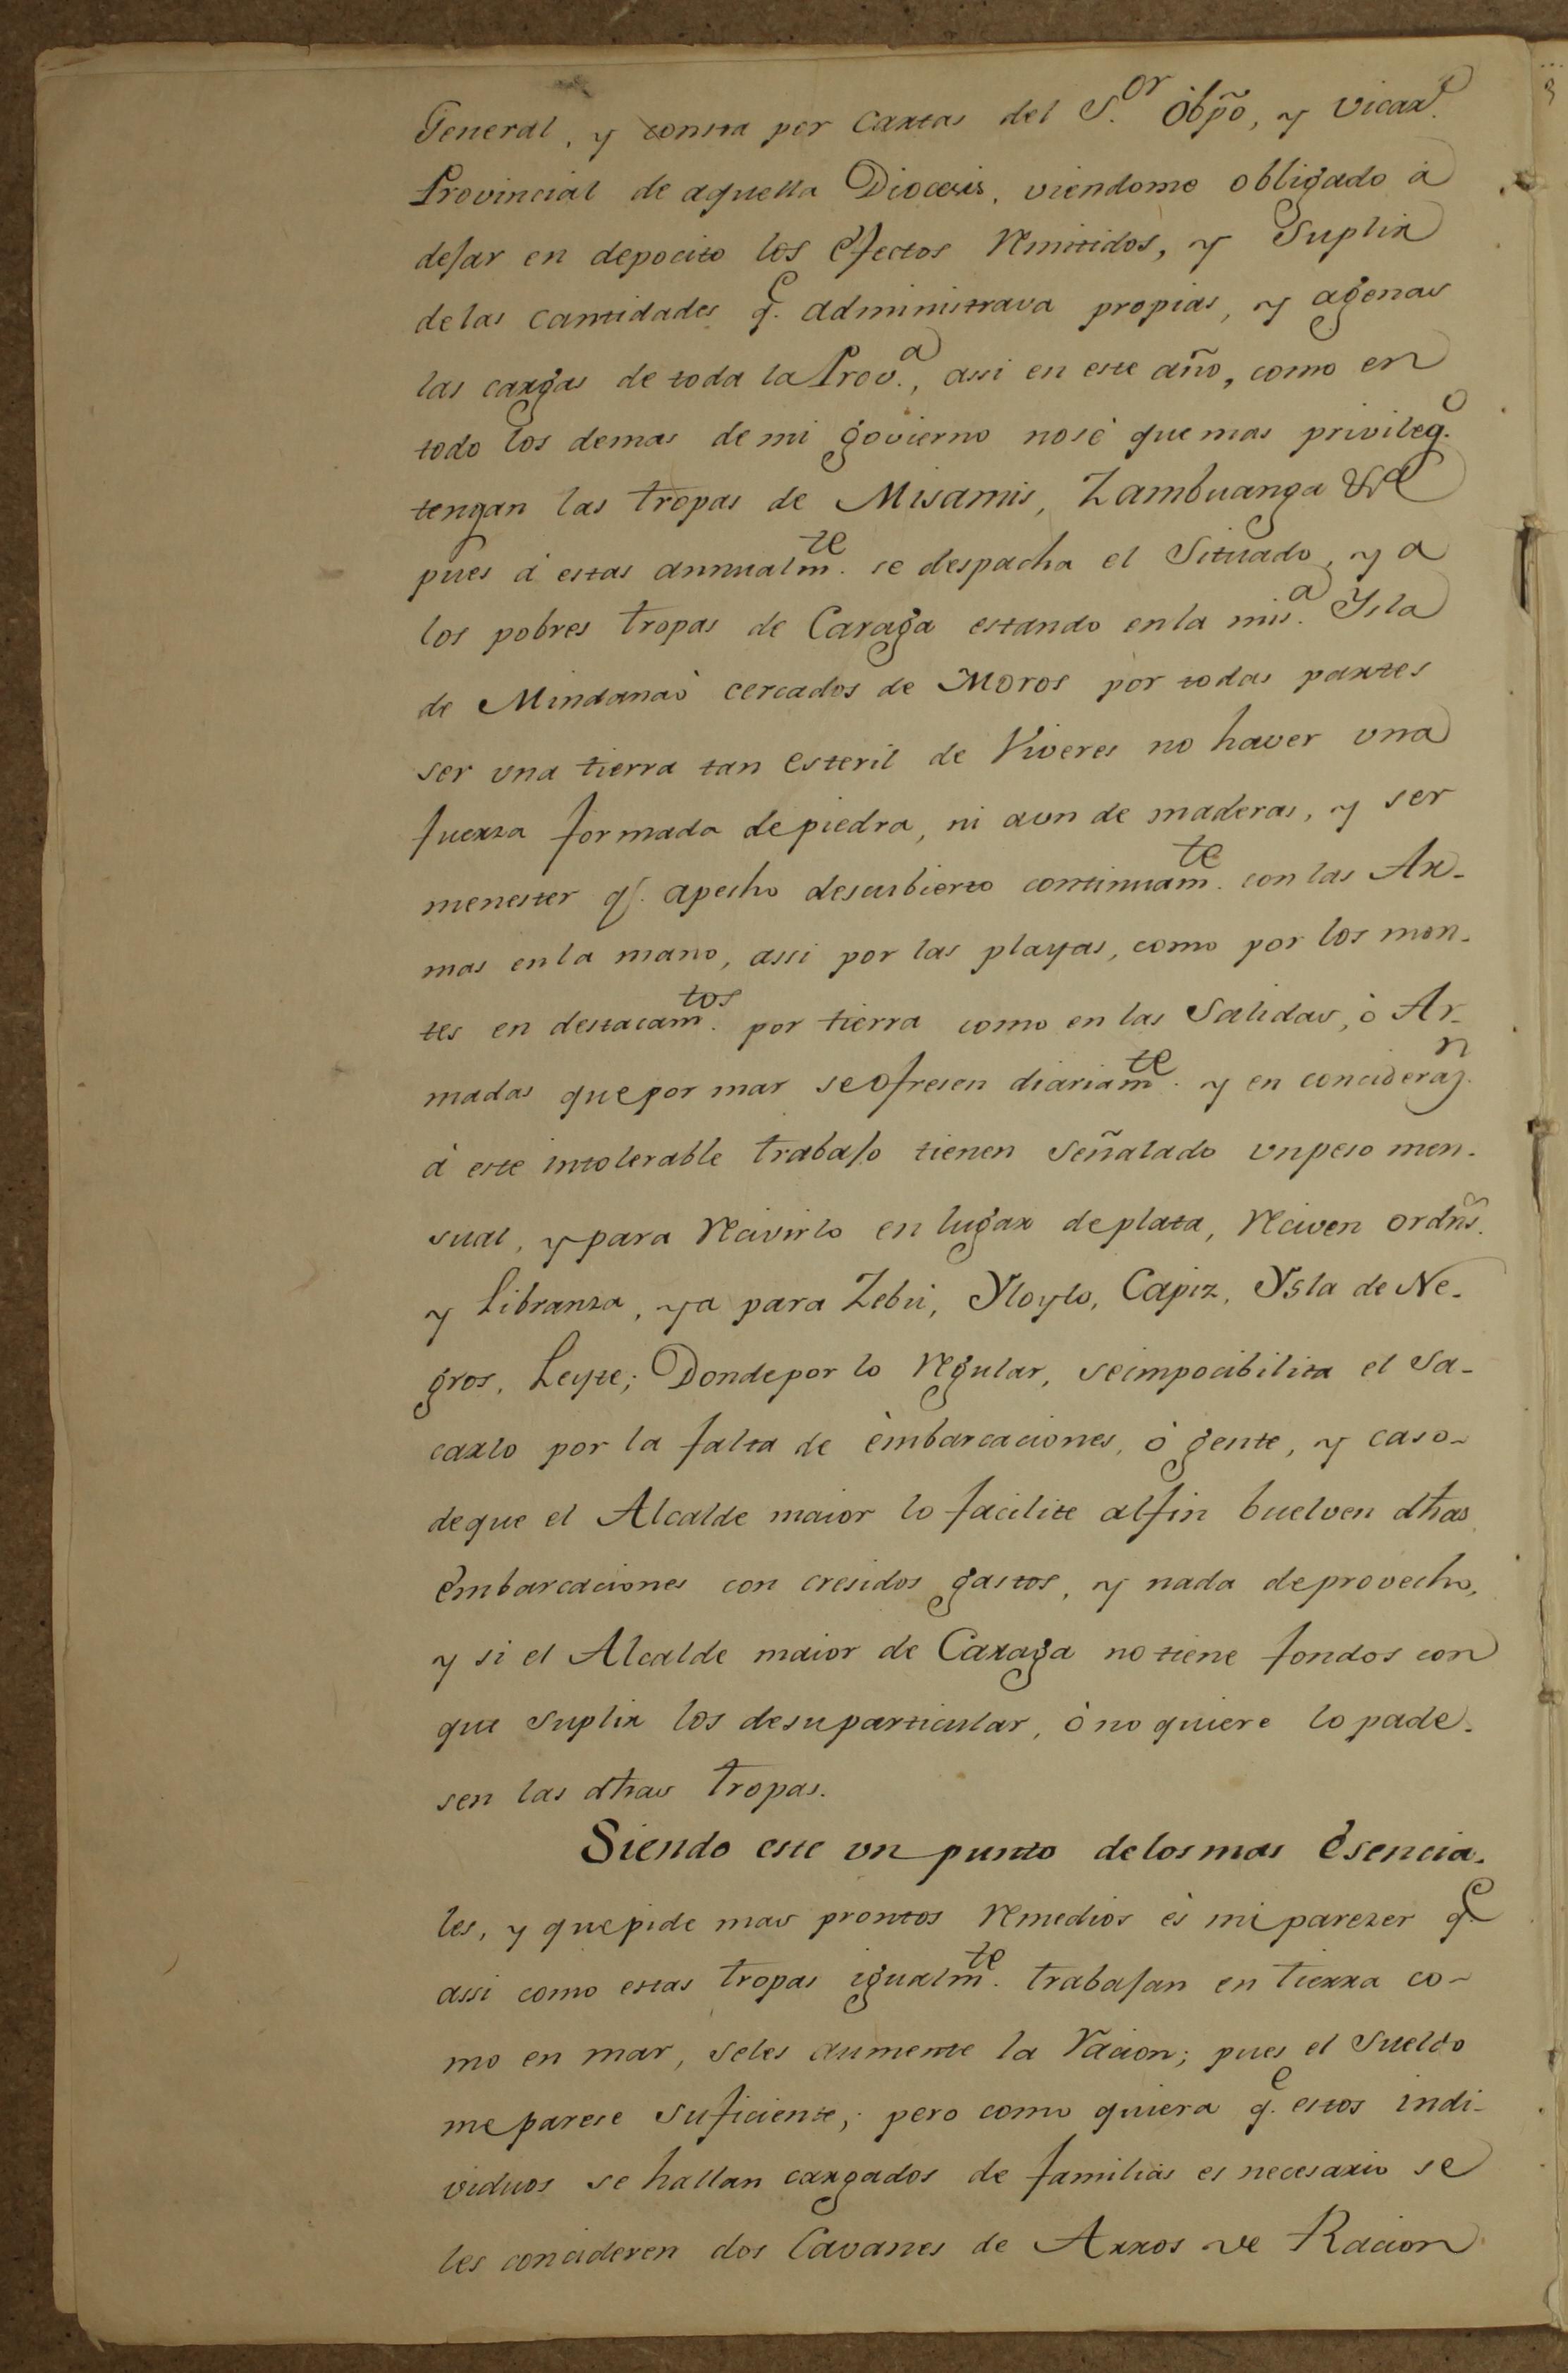 General, y consta por cartas del S.or Obpõ, y Vicarº
Provincial de aquella Diocesis, viendome obligado á
dejar en depocito los efectos Remitidos, y Suplir
delas cantidades q.e administrava propias, y agenas
las cargas de toda la Prov.a, assi en este año, como en
todo los demas de mi govierno nosé que mas privileg.o
tengan las tropas de Misamis, Zambuanga &a
pues á estas annualm.te se despacha el Situado, y a
los pobres tropas de Caraga estando enla mis.a Ysla
de Mindanaò cercados de Moros por todas partes
ser vna tierra tan esteril de Viveres no haver vna
fuerza formada depiedra, ni aun de maderas, y ser
menester q.e apecho descubierto continuam.te con las Ar-
mas enla mano, assi por las playas, como por los mon-
tes en destacam.tos por tierra como en las Salidas, ò Ar-
madas quepor mar seofresen diariam.te y en concideraz.n
á este intolerable trabajo tienen señalado vnpeso men-
sual, y para Recivirlo en lugar deplata, Reciven ordñs.
y Libranza, ya para Zebú, Yloylo, Capiz, Ysla de Ne-
gros, Leyte; Dondepor lo Regular, seimpocibilita el Sa-
carlo por la falta de èmbarcaciones, ò gente, y caso-
deque el Alcalde maior lo facilite alfin buelven dhas
èmbarcaciones con cresidos gastos, y nada deprovecho,
y si el Alcalde maior de Caraga no tiene fondos con
que Suplir los desuparticular, ò no quiere lo pade-
sen las dhas tropas.
Siendo este vn punto delosmas èsencia-
les, y quepide mas prontos Remedios ès mi parezer q.e
assi como estas tropas igualm.te trabajan en tierra co-
mo en mar, seles aumente la Racion; pues el Sueldo
meparese suficiente; pero como quiera q.e estos indi-
viduos se hallan cargados de familias es necesario se
les concideren dos Cavanes de Arros de Racion